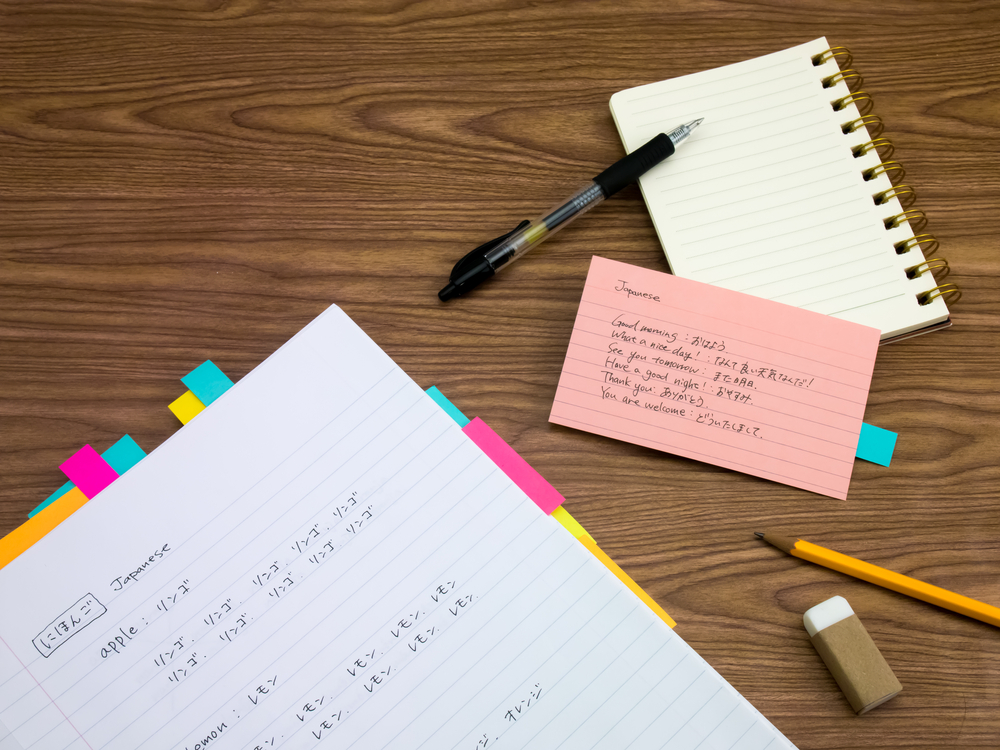 Japanese
Good morning : おはよう
What a nice day! : なんて良い天気なんだ!
See you tomorrow : また明日.
Have a good night! : おやすみ.
Thank you : ありがとう
You are welcome : どういたしまして.
にほんご Japanese
apple : リンゴ
リンゴ. リンゴ. リンゴ. リンゴ. リンゴ
リンゴ. リンゴ. リンゴ. リンゴ. リンゴ
lemon : レモン
モン. レモン. レモン. レモン. レモン
レモン. レモン. レモン. レモン.
ジ. オレンジ